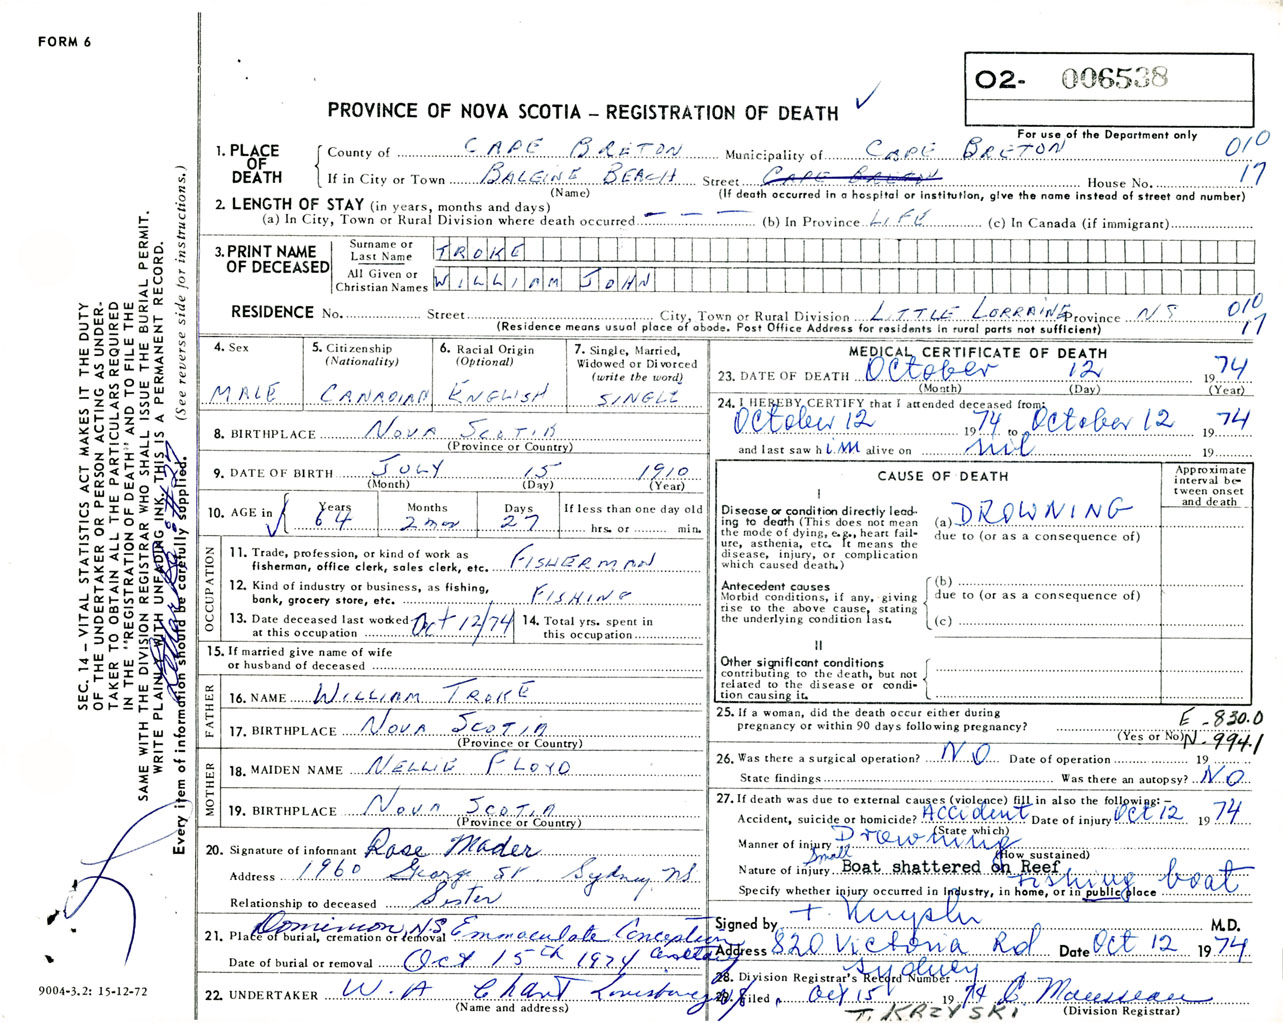 FORM 6
O2- 006538
PROVINCE OF NOVA SCOTIA – REGISTRATION OF DEATH ✓
For use of the Department only
1. PLACE OF DEATH
County of CAPE BRETON Municipality of CAPE BRETON 010
If in City or Town BALEINE BEACH Street CAPE BRETON House No. 17
(Name) (If death occurred in a hospital or institution, give the name instead of street and number)
2. LENGTH OF STAY (in years, months and days)
(a) In City, Town or Rural Division where death occurred — — — (b) In Province LIFE (c) In Canada (if immigrant)
3. PRINT NAME OF DECEASED
Surname or Last Name TROKE
All Given or Christian Names WILLIAM JOHN
RESIDENCE No. Street City, Town or Rural Division LITTLE LORRAINE Province NS 010
(Residence means usual place of abode. Post Office Address for residents in rural parts not sufficient) 17
4. Sex
MALE
5. Citizenship (Nationality)
CANADIAN
6. Racial Origin (Optional)
ENGLISH
7. Single, Married, Widowed or Divorced (write the word)
SINGLE
8. BIRTHPLACE NOVA SCOTIA
(Province or Country)
9. DATE OF BIRTH JULY 15 1910
(Month) (Day) (Year)
10. AGE in ✓ Years 64 Months 2 mos Days 27 If less than one day old hrs. or min.
OCCUPATION
11. Trade, profession, or kind of work as fisherman, office clerk, sales clerk, etc. FISHERMAN
12. Kind of industry or business, as fishing, bank, grocery store, etc. FISHING
13. Date deceased last worked at this occupation Oct 12/74
14. Total yrs. spent in this occupation
15. If married give name of wife or husband of deceased
FATHER
16. NAME WILLIAM TROKE
17. BIRTHPLACE NOVA SCOTIA
(Province or Country)
MOTHER
18. MAIDEN NAME NELLIE FLOYD
19. BIRTHPLACE NOVA SCOTIA
(Province or Country)
20. Signature of informant Rose Mader
Address 1960 George St Sydney NS
Relationship to deceased Sister
21. Place of burial, cremation or removal Dominion, N.S. Emmaculate Conception Cemetery
Date of burial or removal Oct 15th 1974
22. UNDERTAKER W. A Chant Louisbourg NS
(Name and address)
MEDICAL CERTIFICATE OF DEATH
23. DATE OF DEATH October 12 1974
(Month) (Day) (Year)
24. I HEREBY CERTIFY that I attended deceased from:
October 12 1974 to October 12 1974
and last saw him alive on nil 19
CAUSE OF DEATH
Approximate interval between onset and death
I
Disease or condition directly leading to death (This does not mean the mode of dying, e.g., heart failure, asthenia, etc. It means the disease, injury, or complication which caused death.)
(a) DROWNING
due to (or as a consequence of)
Antecedent causes
Morbid conditions, if any, giving rise to the above cause, stating the underlying condition last.
(b)
due to (or as a consequence of)
(c)
II
Other significant conditions
contributing to the death, but not related to the disease or condition causing it.
25. If a woman, did the death occur either during pregnancy or within 90 days following pregnancy?
(Yes or No)
E-830.0
N-994.1
26. Was there a surgical operation? NO Date of operation 19
State findings Was there an autopsy? NO
27. If death was due to external causes (violence) fill in also the following:
Accident, suicide or homicide? Accident Date of injury Oct 12 1974
(State which)
Manner of injury Drowning
(How sustained)
Nature of injury Small Boat shattered on Reef
Specify whether injury occurred in Industry, in home, or in public place Fishing boat
Signed by T. Krzyski M.D.
Address 820 Victoria Rd Sydney Date Oct 12 1974
28. Division Registrar's Record Number
29. Filed Oct 15 1974 C. Mousseau
(Division Registrar)
T. KRZYSKI
SEC. 14 – VITAL STATISTICS ACT MAKES IT THE DUTY
OF THE UNDERTAKER OR PERSON ACTING AS UNDER-
TAKER TO OBTAIN ALL THE PARTICULARS REQUIRED
IN THE "REGISTRATION OF DEATH" AND TO FILE THE
SAME WITH THE DIVISION REGISTRAR WHO SHALL ISSUE THE BURIAL PERMIT.
WRITE PLAINLY WITH UNFADING INK. THIS IS A PERMANENT RECORD.
Every item of information should be carefully supplied. (See reverse side for instructions.)
9004-3.2: 15-12-72